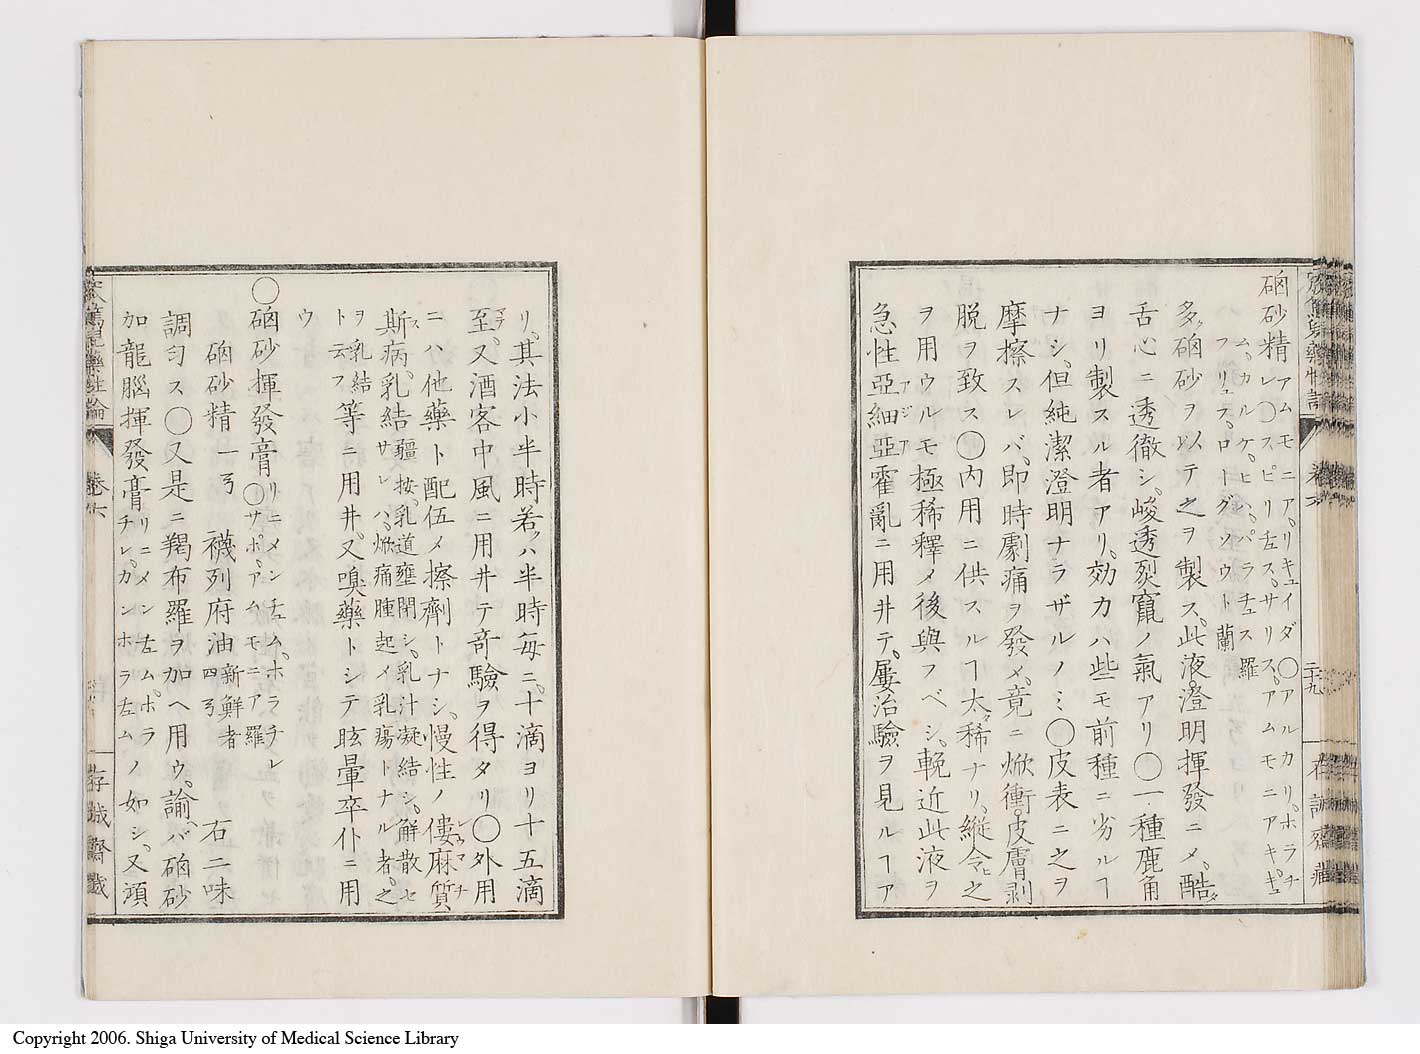 硇砂精アムモニア、リキュイダ〇アルカリ、ホラチ
レ〇スピリ左ス、サリス、アムモニアキ、ギュ
ム、カルケ、ヒハ、パラチュス 羅
フリュス、ロートグソウト 蘭
多ク硇砂ヲ以テ之ヲ製ス、此液澄明揮發ニメ、酷ダ
舌心ニ透徹シ、峻透烈竄ノ氣アリ〇一種鹿角
ヨリ製スル者アリ、効力ハ些モ前種ニ劣ルヿ
ナシ、但純潔澄明ナラザルノミ〇皮表ニ之ヲ
摩擦スレバ、即時劇痛ヲ發メ、竟ニ焮衝、皮膚剥
脱ヲ致ス〇内用ニ供スルヿ太ダ稀ナリ、縱令ヒ之
ヲ用ウルモ極稀釋メ後與フベシ、輓近此液ヲ
急性亞細亞霍亂ニ用井テ、屢治驗ヲ見ルヿア
アジア
二十九
リ、其法小半時若クハ半時毎ニ、十滴ヨリ十五滴
至ル、又酒客中風ニ用井テ奇驗ヲ得タリ〇外用
ニハ他藥ト配伍メ擦劑トナシ、慢性ノ僂麻質
斯病、乳結疆按、乳道壅閉シ、乳汁凝結シ、解散セ
サレハ、焮痛腫起メ乳瘍トナル者、之
ヲ乳結
ト云フ等ニ用井、又嗅藥トシテ眩暈卒仆ニ用
ウ
〇硇砂揮發膏〇リニメン左ム、ホラチレ
〇サポ、アムモニア 羅
硇砂精 一弓 襪列府油新鮮者四弓 右二味
調匀ス〇又是ニ羯布羅ヲ加ヘ用ウ、諭バ硇砂
加龍腦揮發膏リニメン左ム、ホラ
チレ、カンホラ左ムノ如シ、又頑
卷六
存誠齋藏